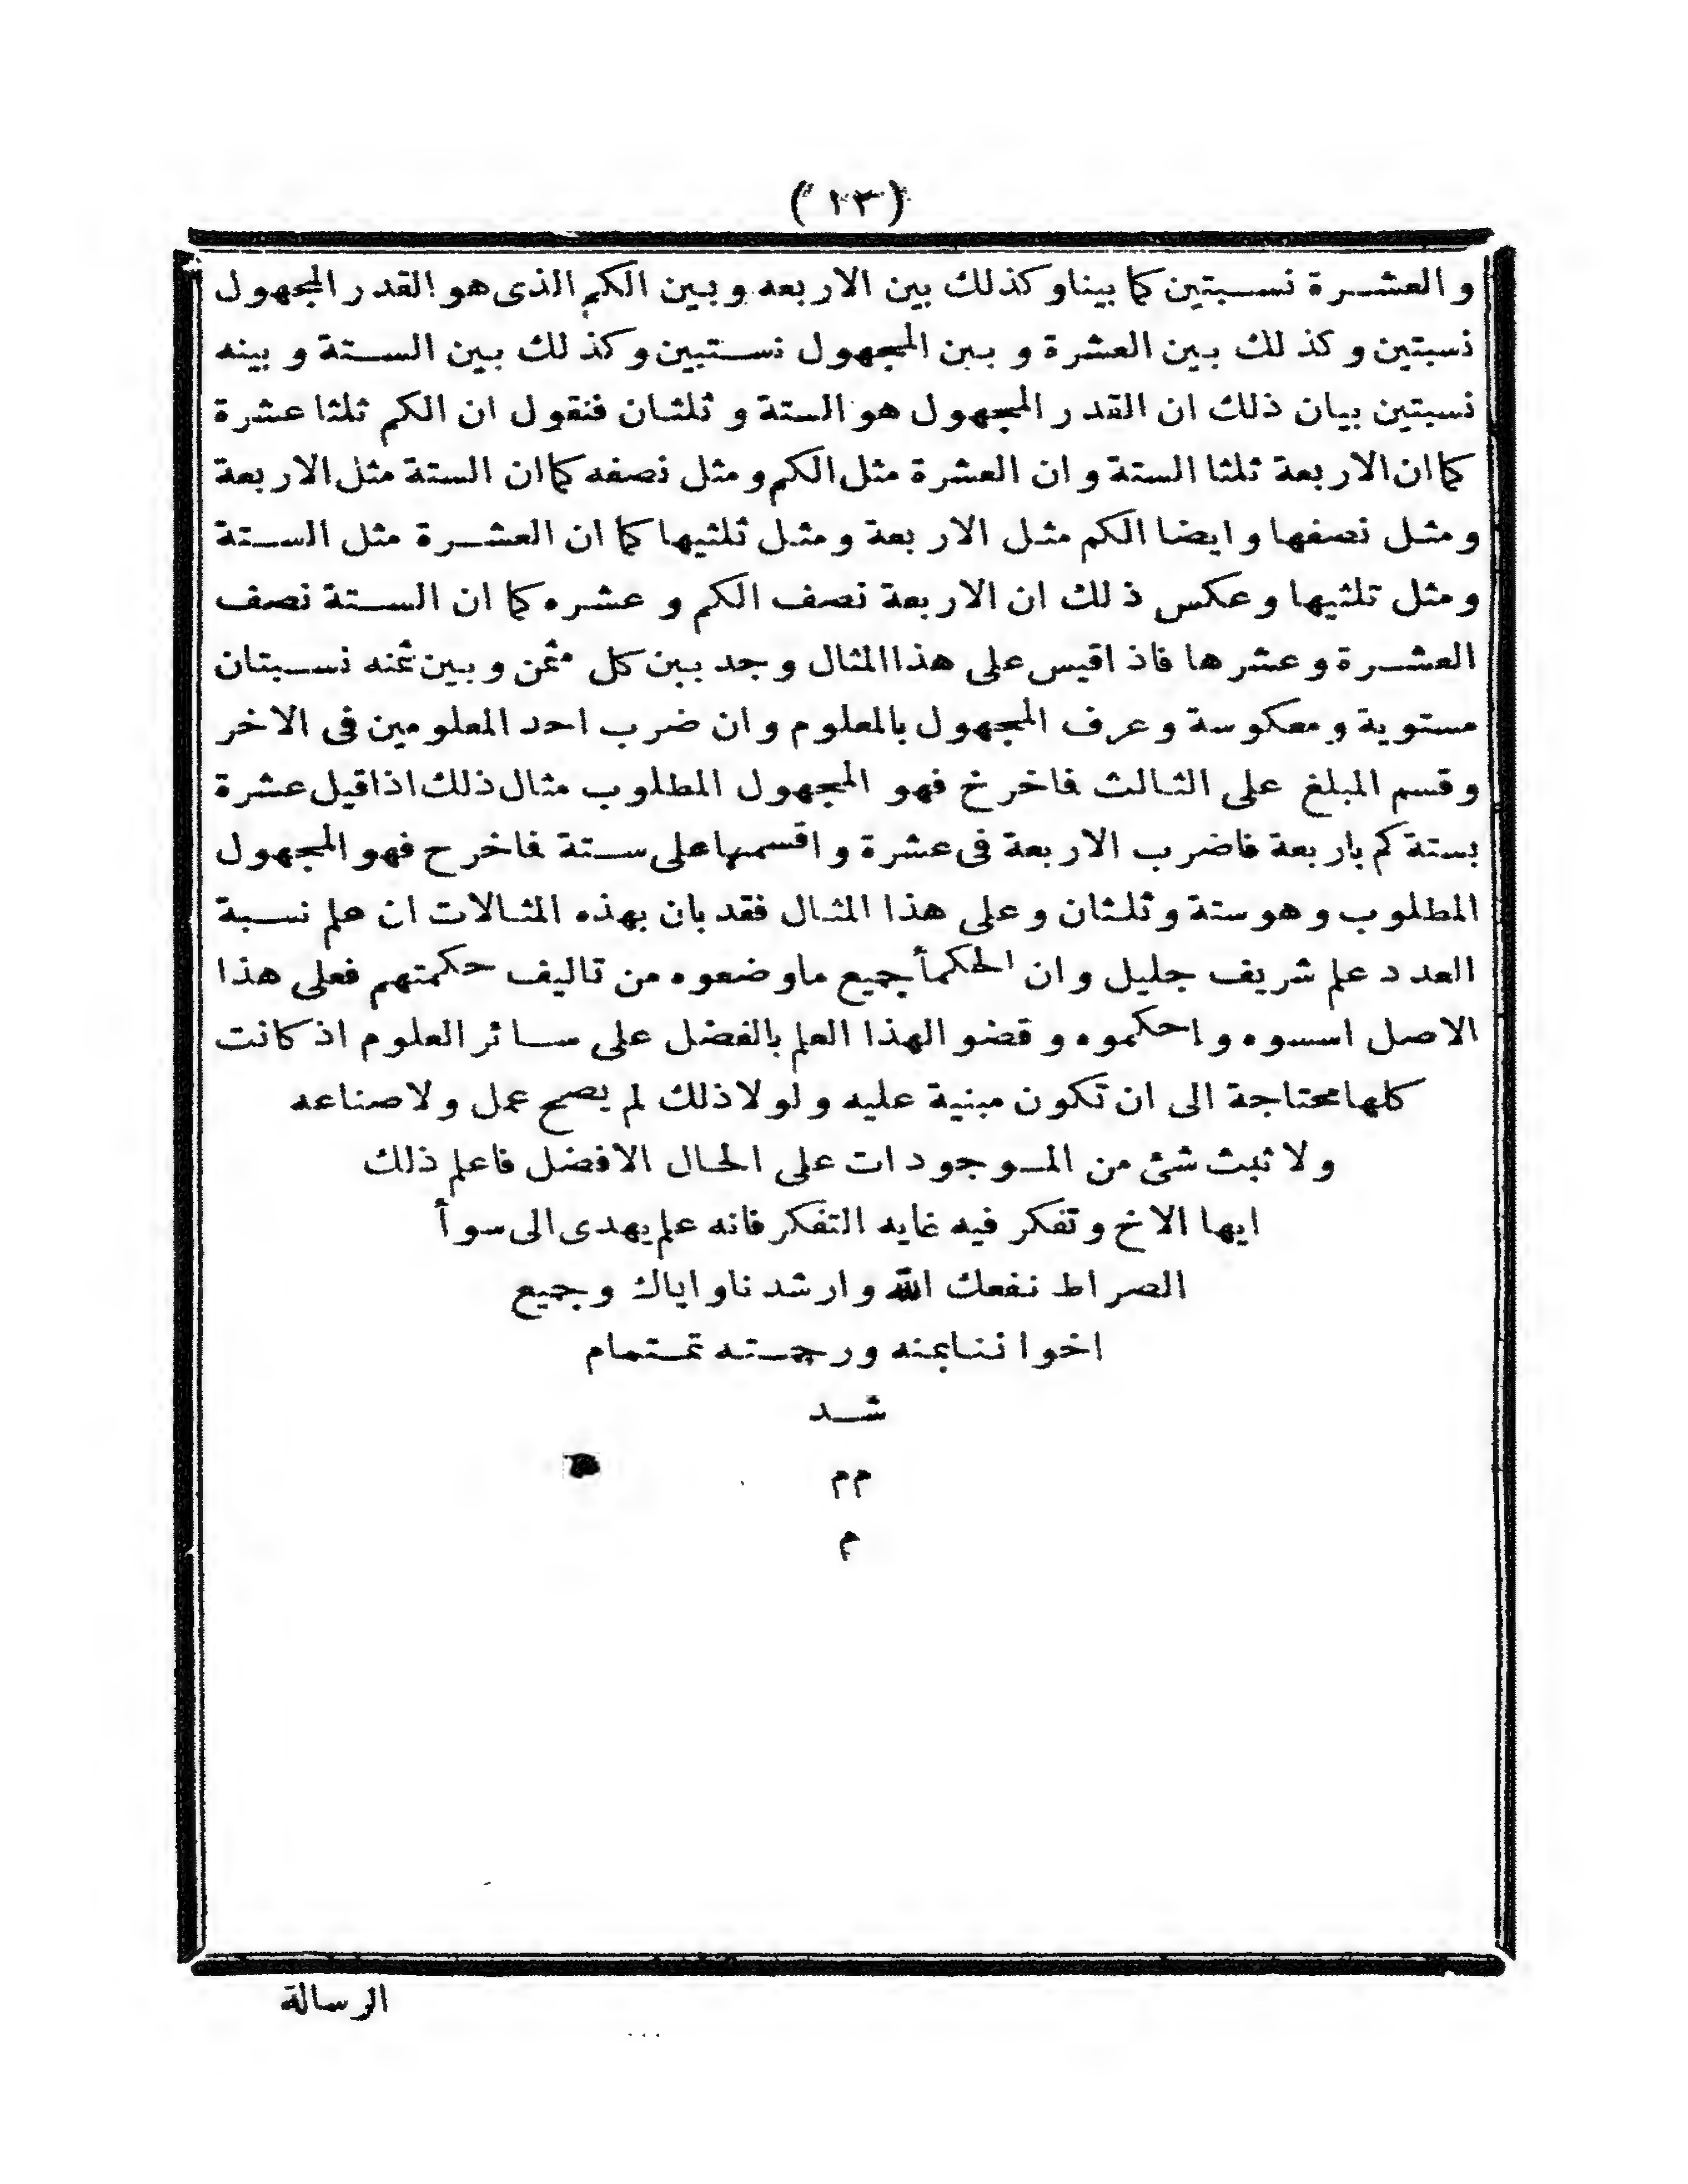 (١٣)
والعشرة نسبتين كما بينا وكذلك بين الاربعه وبين الكم الذى هو القدر المجهول
نسبتين وكذلك بين العشرة وبين المجهول نستبين وكذلك بين الستة وبينه
نسبتين بيان ذلك ان القدر المجهول هو الستة وثلثان فنقول ان الكم ثلثا عشرة
كما ان الاربعة ثلثا الستة وان العشرة مثل الكم ومثل نصفه كما ان الستة مثل الاربعة
ومثل نصفها وايضا الكم مثل الاربعة ومثل ثلثيها كما ان العشرة مثل الستة
ومثل ثلثيها وعكس ذلك ان الاربعة نصف الكم وعشره كما ان الستة نصف
العشرة وعشرها فاذ اقيس على هذا المثال وجد بين كل مثمن وبين ثمنه نسبتان
مستوية ومعكوسة وعرف المجهول بالمعلوم وان ضرب احد المعلومين فى الاخر
وقسم المبلغ على الثالث فاخرخ فهو المجهول المطلوب مثال ذلك اذا قيل عشرة
بستة كم باربعة فاضرب الاربعة فى عشرة واقسمها على ستة فاخرح فهو المجهول
المطلوب وهو ستة وثلثان وعلى هذا المثال فقد بان بهذه المثالات ان علم نسبة
العدد علم شريف جليل وان الحكمأ جميع ماوضعوه من تاليف حكمتهم فعلى هذا
الاصل اسسوه واحكموه وقضوا لهذا العلم بالفضل على سائر العلوم اذ كانت
كلها محتاجة الى ان تكون مبنية عليه ولولا ذلك لم يصح عمل ولا صناعه
ولا ثبث شئ من الموجودات على الحال الافضل فاعلم ذلك
ايها الاخ وتفكر فيه غايه التفكر فانه علم يهدى الى سوأ
الصراط نفعك الله وارشدنا واياك وجميع
اخواننا بمنه ورحمته تمتمام
شد
م م
م
الرسالة